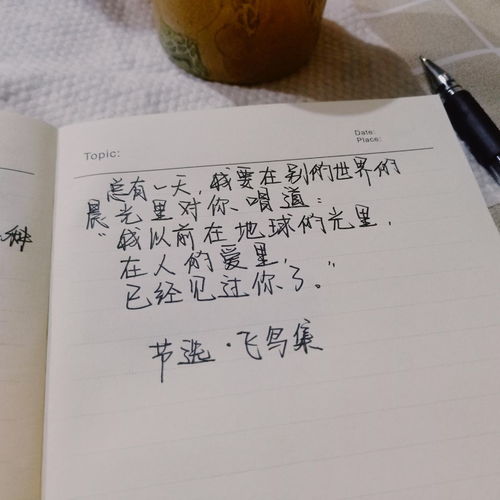 种
Topic:
Date:
Place:
总有一天,我要在别的世界的
晨光里对你唱道:
"我以前在地球的光里,
在人的爱里,
已经见过你了。"
节选·飞鸟集